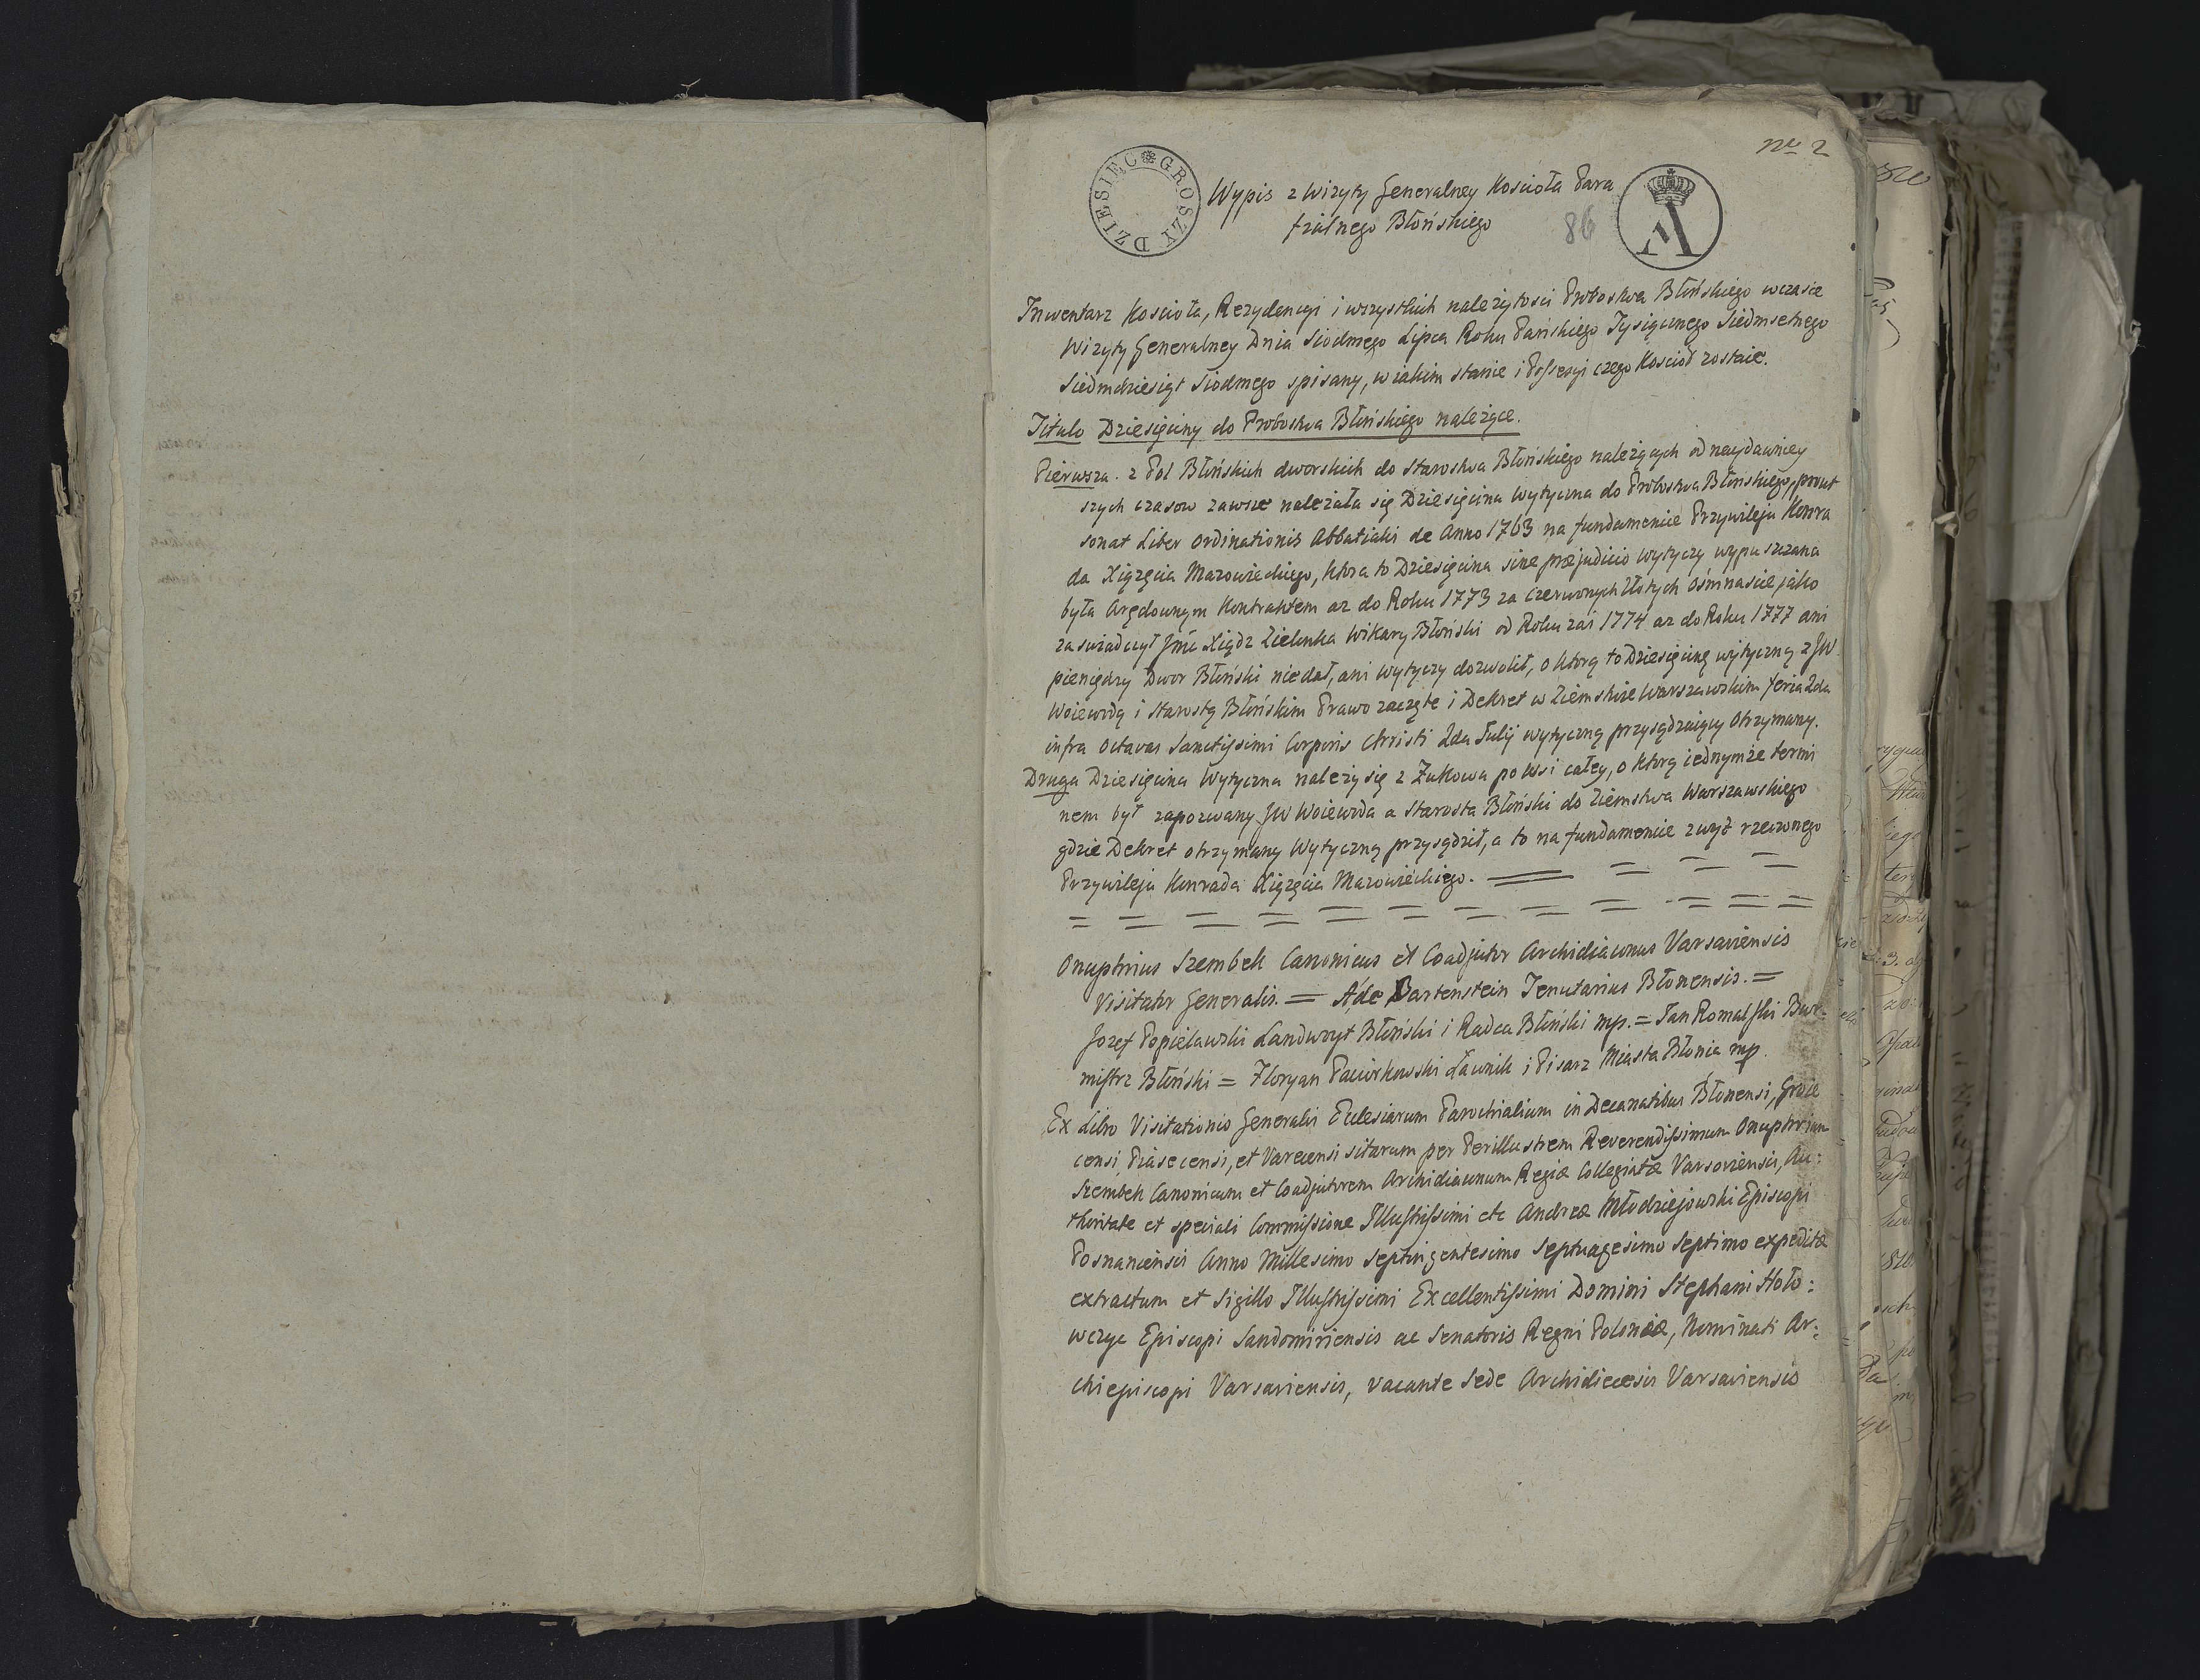 nro 2
DZIESIĘĆ GROSZY
Wypis z Wizyty Generalney Kościoła Para
fialnego Błońskiego
86
Inwentarz Kościoła, Rezydencyi i wszystkich należytości Probostwa Błońskiego wczasie
Wizyty Generalney Dnia Siódmego Lipca Roku Pańskiego Tysiącznego Siedmsetnego
Siedmdziesiąt Siódmego spisany, w iakim stanie i Possessyi czego Kościoł zostaie.
Titulo Dziesięciny do Probostwa Błońskiego należące.
Pierwsza. z Pol Błońskich dworskich do Starostwa Błońskiego należących od naydawniey
szych czasow zawsze należała się Dziesięcina Wytyczna do Probostwa Błońskiego, prout
sonat Liber Ordinationis Abbatialis de Anno 1763 na fundamencie Przywileju Konra
da Xiążęcia Mazowieckiego, ktora to Dziesięcina sine præjudicio wytyczy wypuszczana
była Arędownym Kontraktem az do Roku 1773 za Czerwonych Złotych Ośmnaście, jako
zaświadczył Jmć Xiądz Zielonka Wikary Błoński od Roku zaś 1774 az do Roku 1777 ani
pieniędzy Dwor Błoński niedał, ani wytyczy dozwolił, o ktorą to Dziesięcinę wytyczną z JW
Woiewodą i Starostą Błońskim Prawo zaczęte i Dekret w Ziemstwie Warszawskim feria 2da
infra Octavas Sanctissimi Corporis Christi 2da Julij wytyczną przysądzaiący Otrzymany.
Druga Dziesięcina Wytyczna należy się z Żukowa po Wsi całey, o ktorą iednymże termi
nem był zapozwany JW Woiewoda a Starosta Błoński do Ziemstwa Warszawskiego
gdzie Dekret otrzymany Wytyczną przysądził, a to na fundamencie zwyż rzeczonego
Przywileju Konrada Xiążęcia Mazowieckiego.
Onuphrius Szembek Canonicus et Coadjutor Archidiaconus Varsaviensis
Visitator Generalis. = A, de Bartenstein Tenutarius Błonensis. =
Jozef Popielawski Landwoyt Błoński i Radca Błoński mp. = Jan Romalski Bur:
mistrz Błoński = Floryan Paciorkowski Ławnik i Pisarz Miasta Błonia mp.
Ex Libro Visitationis Generalis Ecclesiarum Parochialium in Decanatibus Błonensi, Groie
censi Piasecensi, et Varecensi sitarum per Perillustrem Reverendissimum Onuphrium
Szembek Canonicum et Coadjutorem Archidiaconum Regiæ Collegiatæ Varsoviensis, Au:
thoritate et speciali Commissione Illustrissimi etc Andreæ Młodziejowski Episcopi
Posnaniensis Anno Millesimo Septingentesimo Septuagesimo Septimo expeditæ
extractum et Sigillo Illustrissimi Excellentissimi Domini Stephani Hoło:
wczyc Episcopi Sandomiriensis ac Senatoris Regni Poloniæ, Nominati Ar:
chiepiscopi Varsaviensis, vacante Sede Archidiecesis Varsaviensis